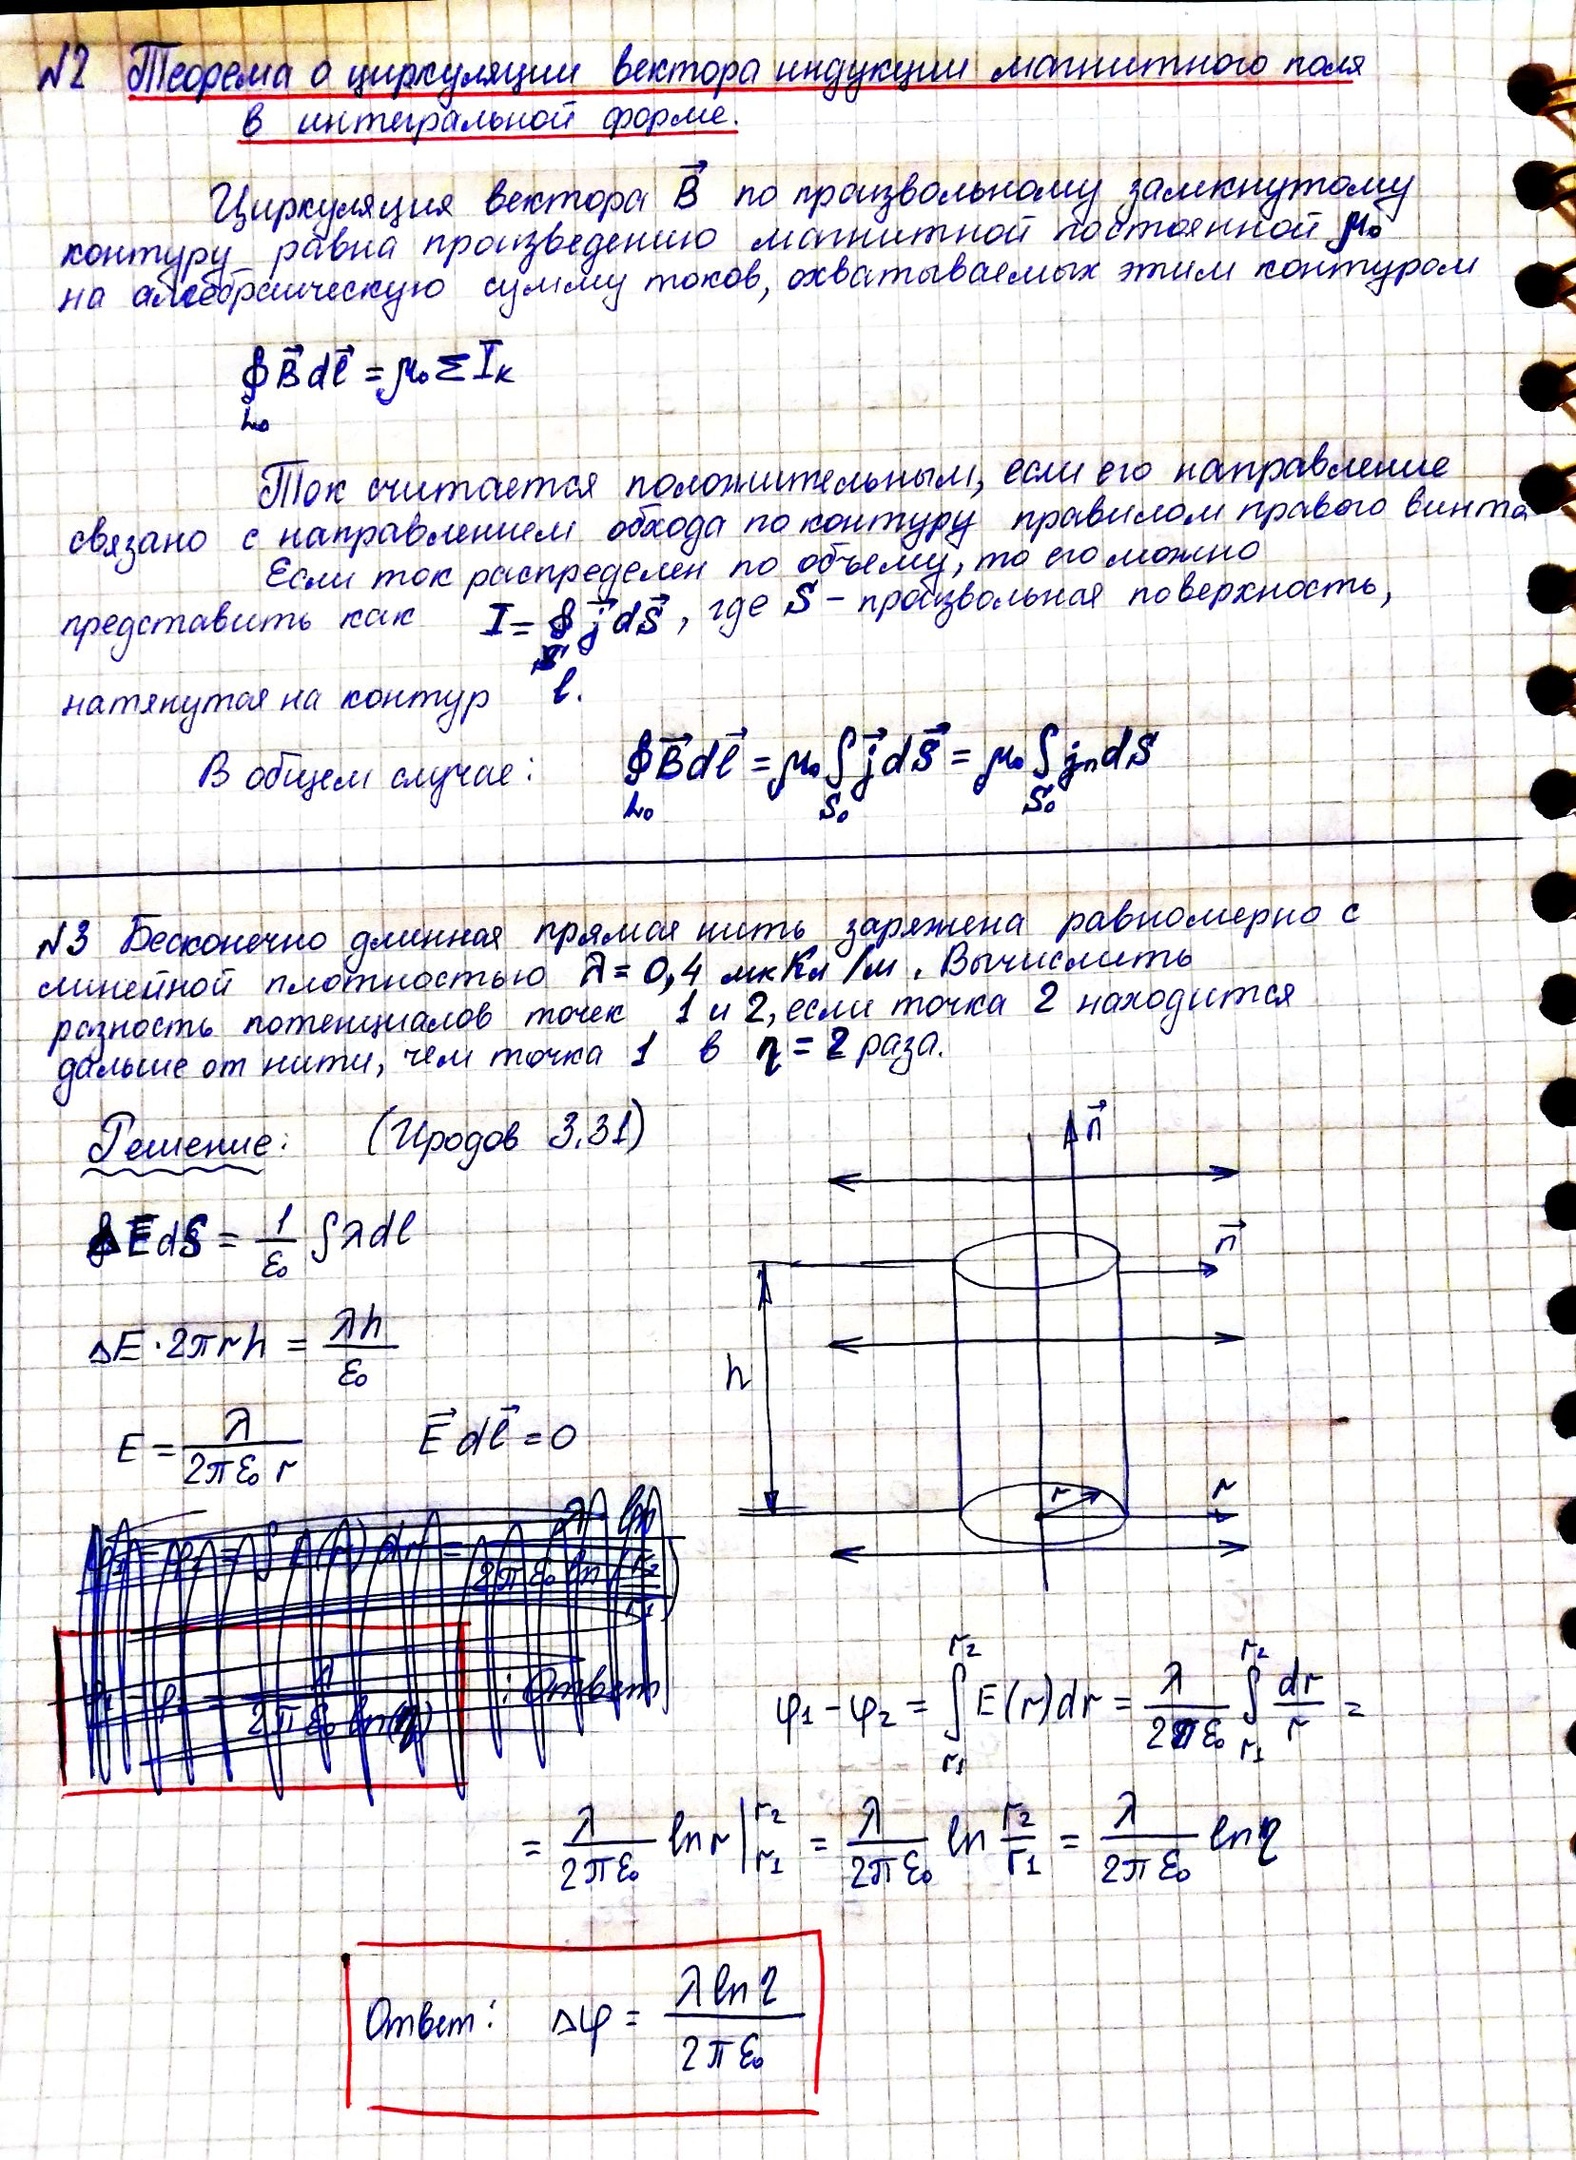 №2 Теорема о циркуляции вектора индукции магнитного поля
в интегральной форме.
Циркуляция вектора B⃗ по произвольному замкнутому
контуру равна произведению магнитной постоянной μ₀
на алгебраическую сумму токов, охватываемых этим контуром
∮_L₀ B⃗dl⃗ = μ₀ Σ Iₖ
Ток считается положительным, если его направление
связано с направлением обхода по контуру правилом правого винта
Если ток распределен по объему, то его можно
представить как I = ∮_S j⃗dS⃗, где S – произвольная поверхность,
натянутая на контур l.
В общем случае: ∮_L₀ B⃗dl⃗ = μ₀ ∫_S₀ j⃗dS⃗ = μ₀ ∫_S₀ jₙdS
№3 Бесконечно длинная прямая нить заряжена равномерно с
линейной плотностью λ = 0,4 мкКл/м. Вычислить
разность потенциалов точек 1 и 2, если точка 2 находится
дальше от нити, чем точка 1 в η = 2 раза.
Решение: (Иродов 3.31)
n⃗
∮ EdS = 1/ε₀ ∫ λdl
n⃗
ΔE · 2πrh = λh/ε₀
h
E = λ/(2πε₀ r) E⃗dl⃗ = 0
r r
: Ответ
φ₁ – φ₂ = ∫_r₁^r₂ E(r)dr = λ/(2πε₀) ∫_r₁^r₂ dr/r =
= λ/(2πε₀) ln r |_r₁^r₂ = λ/(2πε₀) ln r₂/r₁ = λ/(2πε₀) ln η
Ответ: Δφ = λ ln η/(2πε₀)